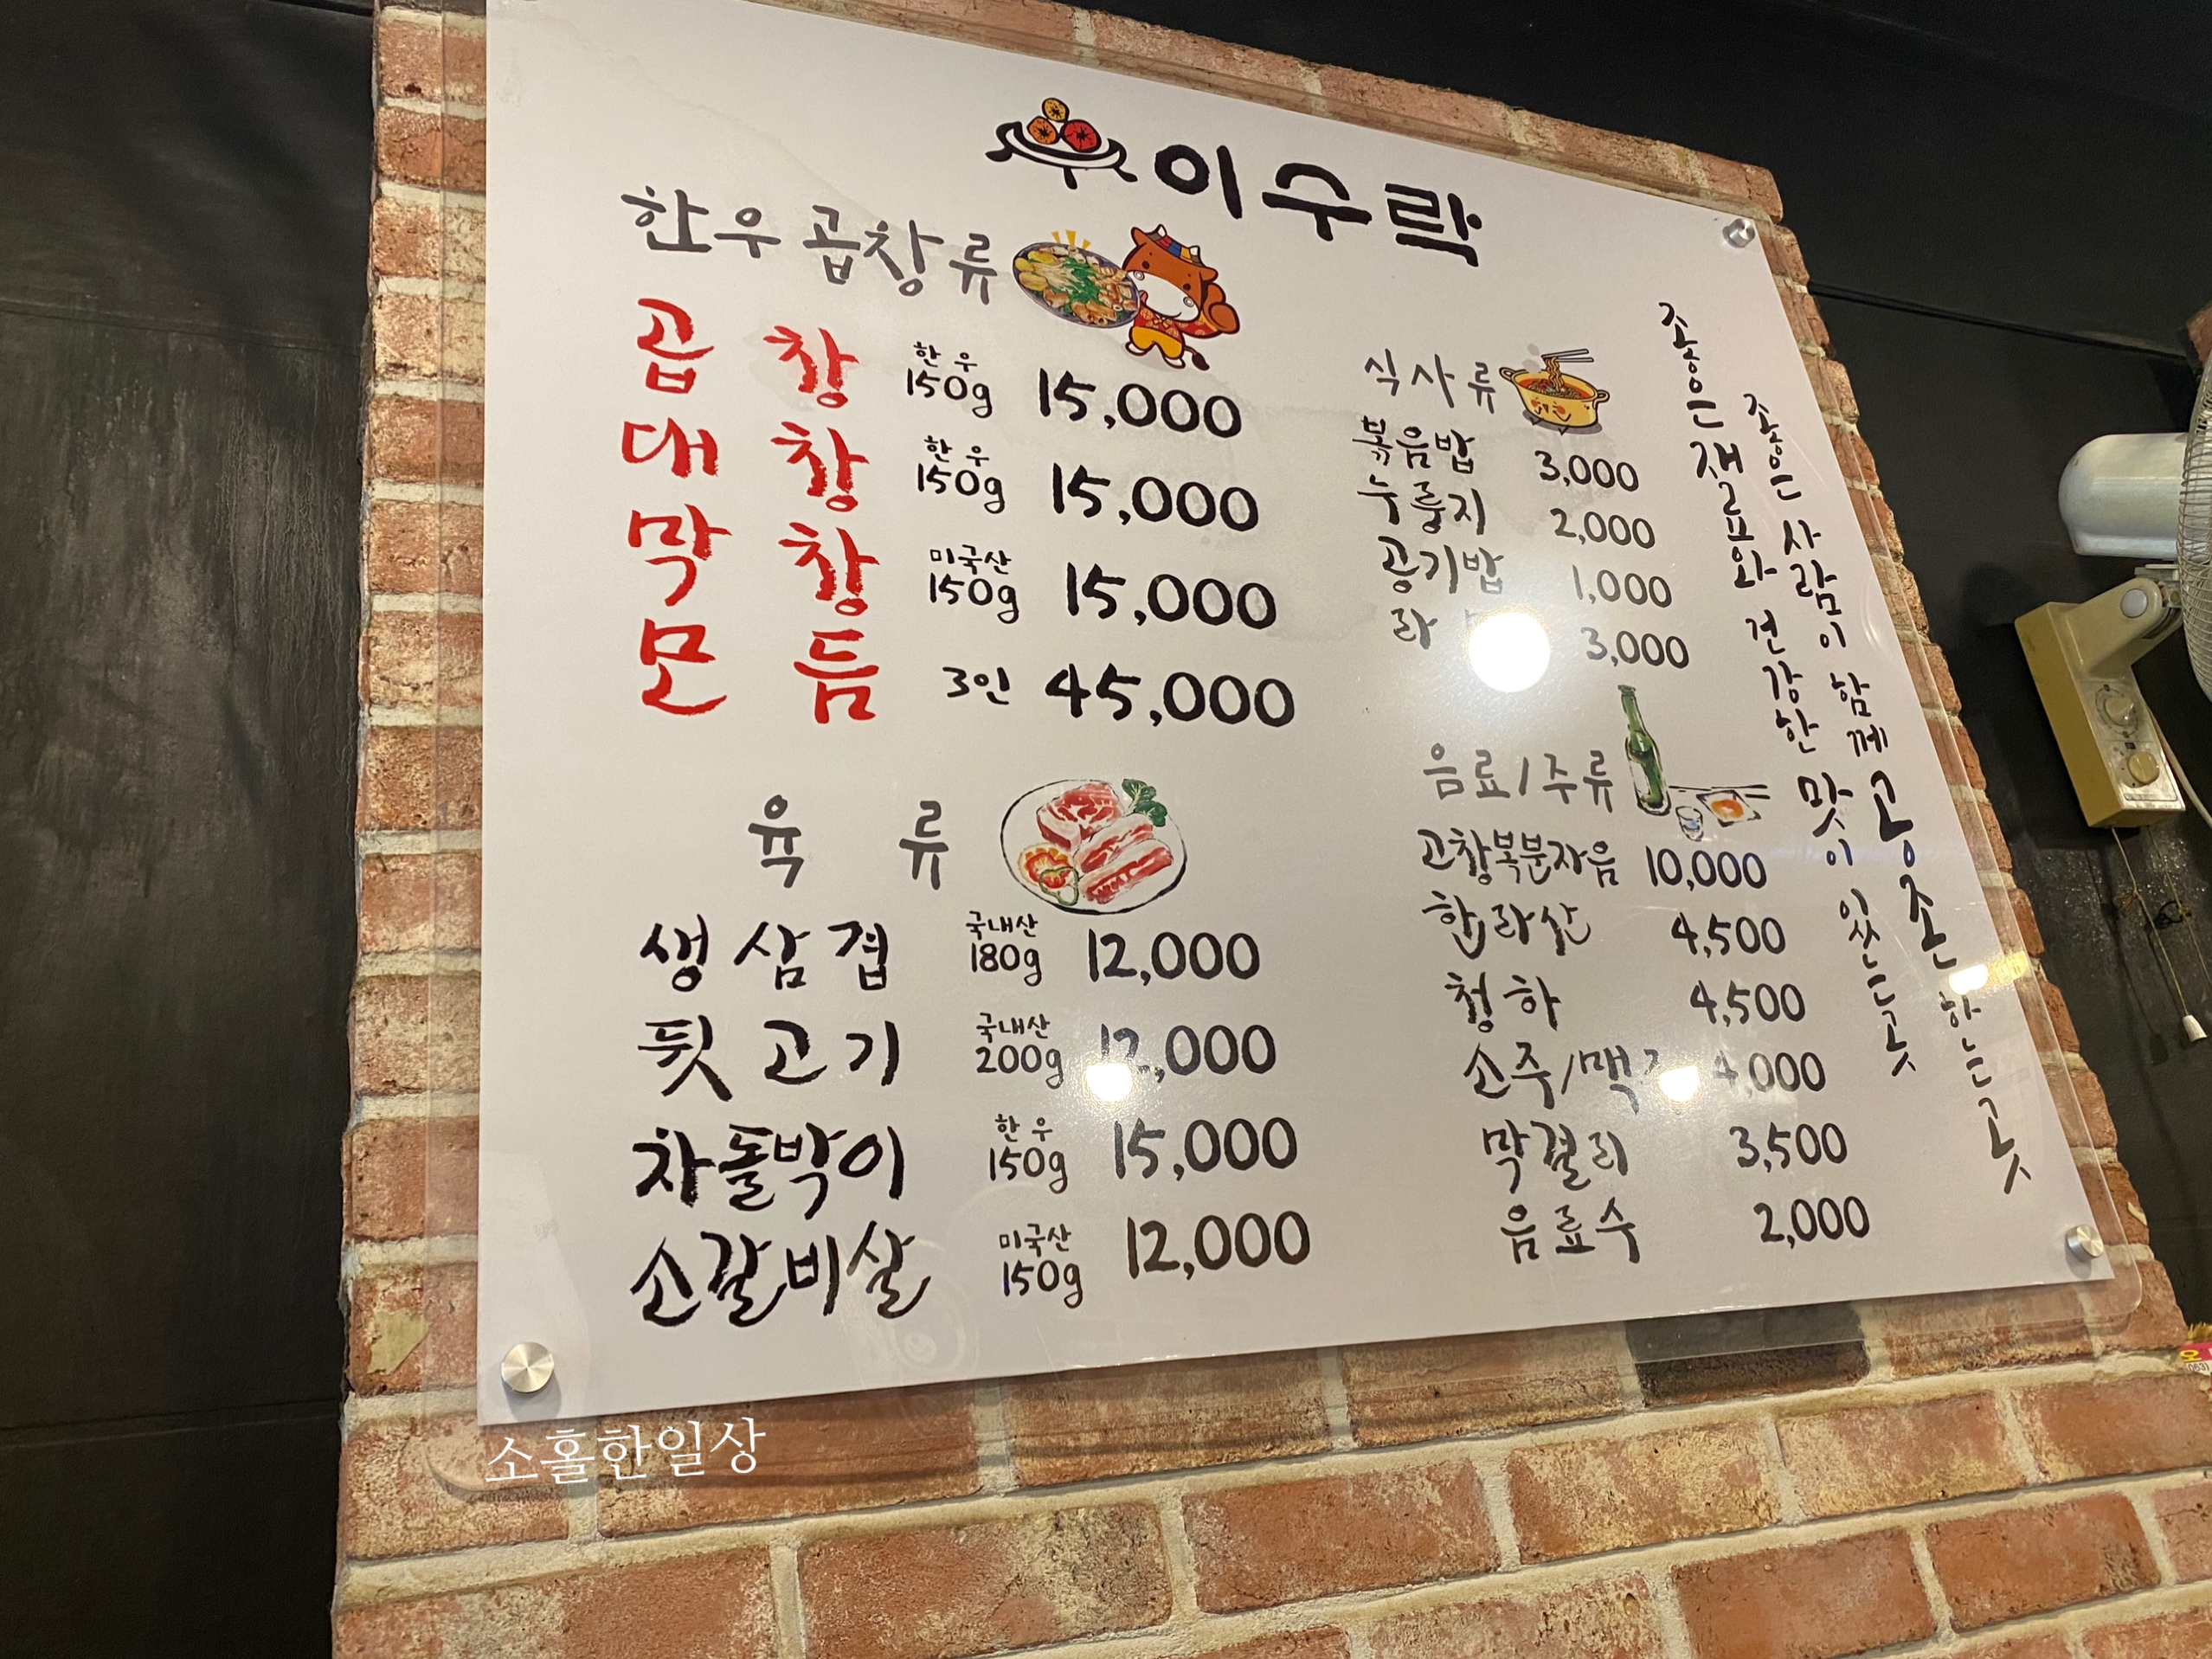 우이수락
한우곱창류
곱창 한우 150g 15,000
대창 한우 150g 15,000
막창 미국산 150g 15,000
모듬 3인 45,000
육류
생삼겹 국내산 180g 12,000
뒷고기 국내산 200g 12,000
차돌박이 한우 150g 15,000
소갈비살 미국산 150g 12,000
식사류
볶음밥 3,000
누룽지 2,000
공기밥 1,000
라 3,000
음료/주류
고창복분자음 10,000
한라산 4,500
청하 4,500
소주/맥 4,000
막걸리 3,500
음료수 2,000
좋은 재료와 건강한 맛이 있는 곳
좋은 사람이 함께 공존하는 곳
소홀한일상